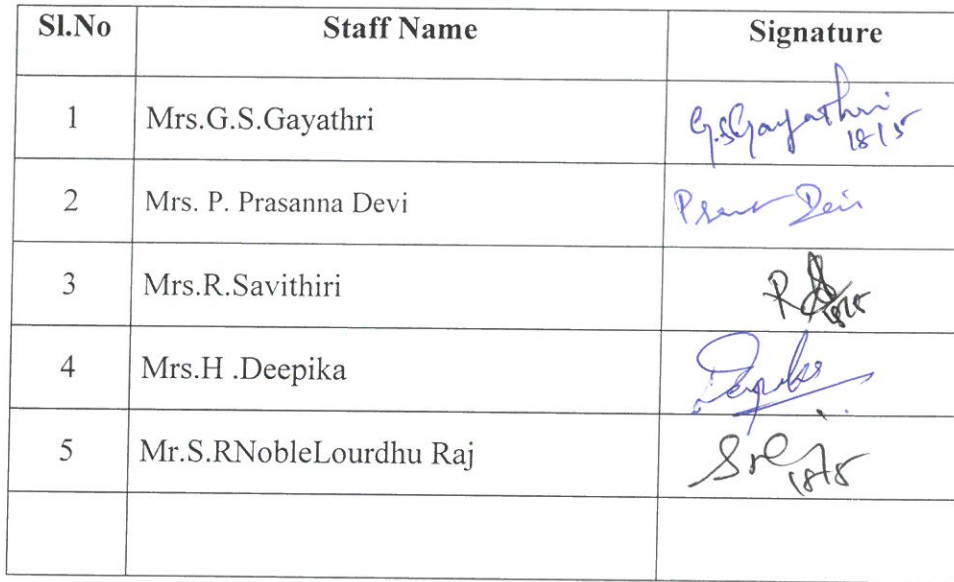 Sl.No Staff Name Signature
1 Mrs.G.S.Gayathri G.S.Gayathri
18/5
2 Mrs. P. Prasanna Devi
3 Mrs.R.Savithiri
4 Mrs.H .Deepika Deepika
5 Mr.S.RNobleLourdhu Raj
18/5